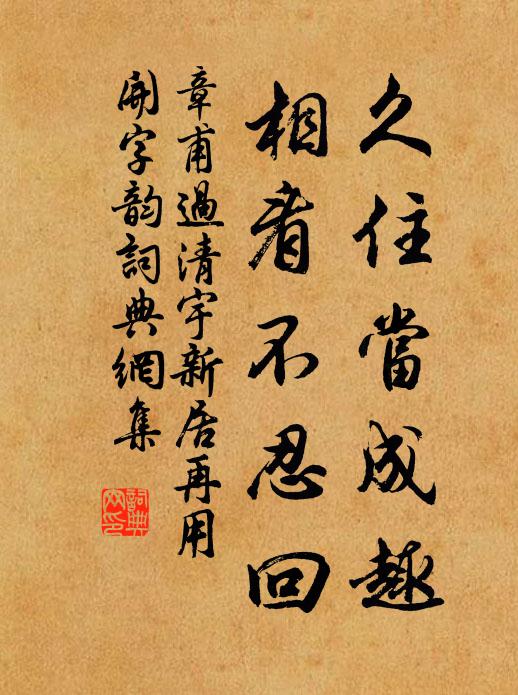 久住當成趣
相看不忍回
章甫過清宇新居再用
開字韵詞典網集
詞典
网印